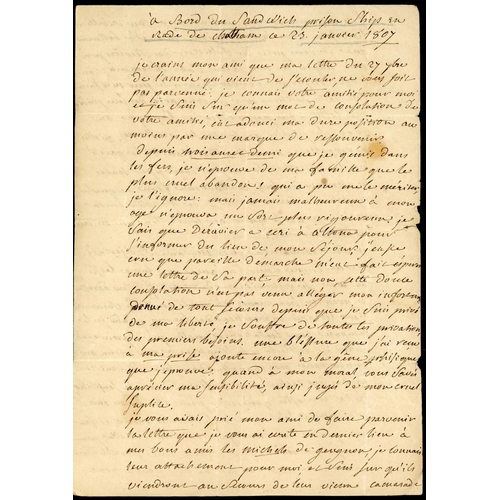 à Bord du Sandwich prison Ships en
Rade de chattam ce 23 janvier 1807
je crains mon ami que ma lettre du 27 9bre
de l'année qui vient de s'ecouler ne vous soit
pas parvenue. je connais votre amitié pour moi
et je suis sur qu'un mot de consolation de
votre amitié, eut adouci ma dure position au
moins par une marque de ressouvenir
depuis trois ans et demi que je gémis dans
les fers, je n'éprouve de ma famille que le
plus cruel abandon! qui a pu me le mériter
je l'ignore: mais jamais malheureux à mon
age n'éprouva un sort plus rigoureux, je
sais que a ecri à altona pour
s'informer du lieu de mon Séjour,
cru que pareille demarche m'eut fait
une lettre de sa part mais non cette douce
consolation n'est pas venu alléger mon infortune
denué de tout secours depuis que je suis privé
de ma liberté, je souffre de toutes les privations
des premiers besoins. une blessure que j'ai recu
à ma prise ajoute encore à la gêne phisique
que j'éprouve, quand à mon moral vous savés
aprécier ma sensibilité, ainsi jugés de mon cruel
suplice.
je vous avais prié mon ami de faire parvenir
la lettre que je vous ai ecrite en dernier lieu à
mes bons amis les michels de gueugnon, je connais
leur attachement pour moi, et suis sur qu'ils
viendront au secours de leur vieux camarade